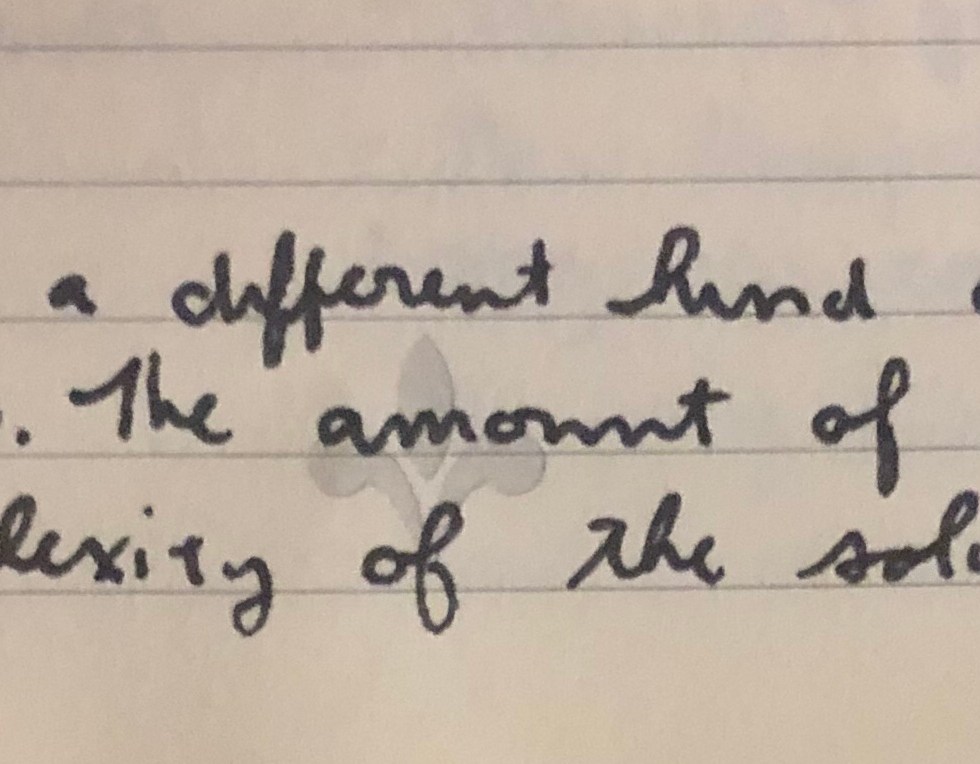 a different kind
. The amount of
lexity of the solu